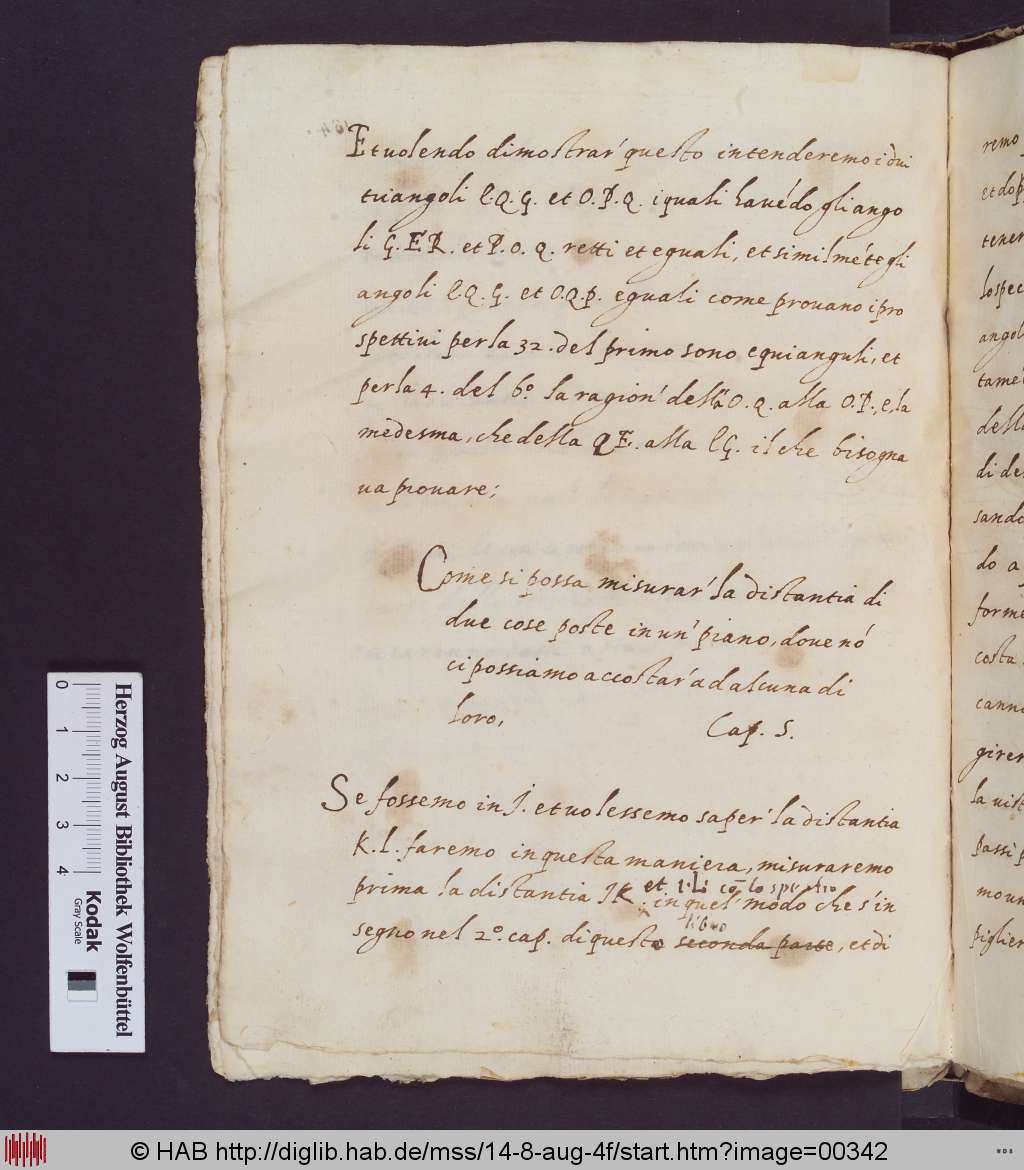 Et uolendo dimostrar' questo intenderemo i dui
triangoli E.Q.G. et O.P.Q. i quali havédo gli ango
li G.E R. et P.O.Q. retti et eguali, et similméte gli
angoli E.Q.G. et O.Q.P. eguali come prouano i pro
spettiui per la 32. del primo sono equianguli, et
per la 4. del 6.º la ragion' della O.Q. alla O.P., e, la
medesma, che della QE. alla EG. il che bisogna
ua prouare;
Come si possa misurar' la distantia di
due cose poste in un' piano, doue nó
ci possiamo accostar' ad alcuna di
loro,
Cap. 5.
Se fossemo in J. et uolessemo saper' la distantia
K.L. faremo in questa maniera, misuraremo
et I.L. co̅ lo specchio
prima la distantia JK in quel' modo che s'in
libro
segno nel 2.º cap. di questo seconda parte, et di
remo
et dop
tener
lo spec
angol
tame
della
di de
sando
do a
forme
costa
canna
girer
la uist
passi p
mo un
piglier
Herzog August Bibliothek Wolfenbüttel
Kodak
Gray Scale
0
1
2
3
4
© HAB http://diglib.hab.de/mss/14-8-aug-4f/start.htm?image=00342